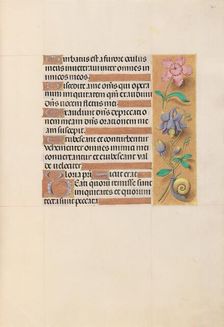 Turbatus est a furore oculus
meus inveteravi inter omnes in
imicos meos.
Discedite a me omnes qui opera
mini iniquitatem quoniam exau
divit dominus vocem
fletus mei
Exaudivit dominus deprecatio
nem meam dominus orationem me
am suscepit
Erubescant et conturbentur
vehementer omnes inimici mei
convertantur et erubescant val
de velociter
Gloria patri
Beati quorum remisse sunt
iniquitates et quorum
tecta sunt peccata